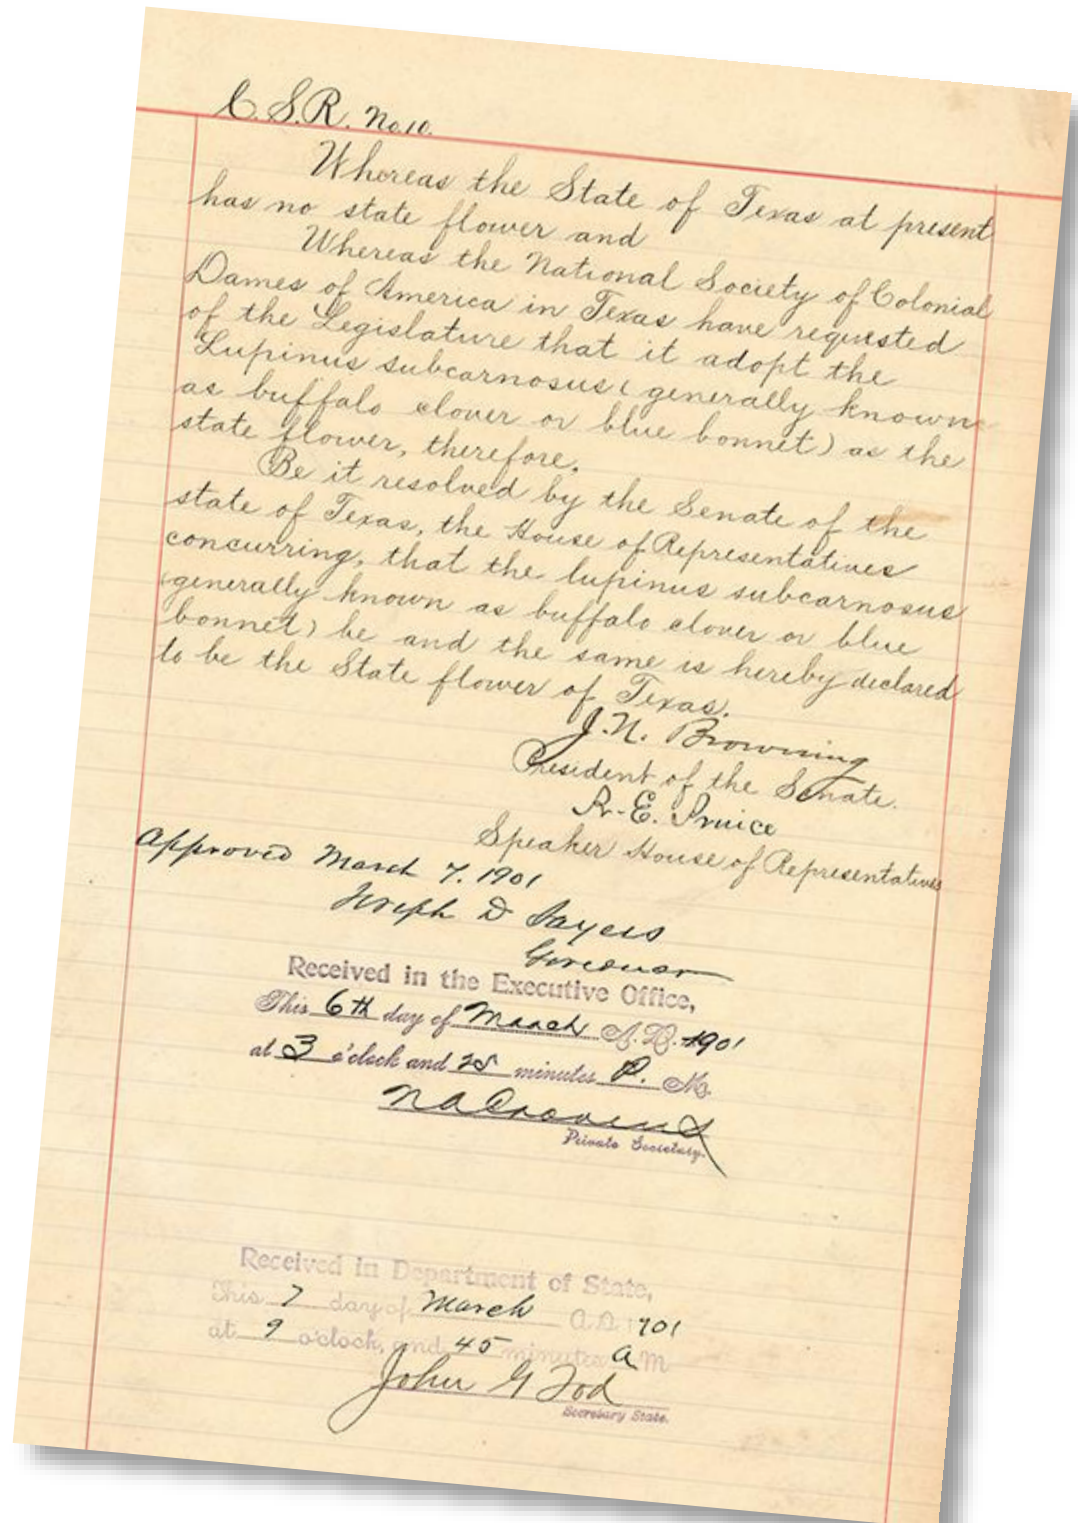 C. S. R. No. 10.
Whereas the State of Texas at present
has no state flower and
Whereas the National Society of Colonial
Dames of America in Texas have requested
of the Legislature that it adopt the
Lupinus subcarnosus (generally known
as buffalo clover or blue bonnet) as the
state flower, therefore,
Be it resolved by the Senate of the
state of Texas, the House of Representatives
concurring, that the lupinus subcarnosus
(generally known as buffalo clover or blue
bonnet) be and the same is hereby declared
to be the State flower of Texas.
J. N. Browning
President of the Senate.
R. E. Prince
Speaker House of Representatives
Approved March 7. 1901
Joseph D Sayers
Governor
Received in the Executive Office,
This 6th day of March A.D. 1901
at 3 o'clock and 25 minutes P. M.
Private Secretary.
Received in Department of State,
This 7 day of March A.D. 1901
at 9 o'clock, and 45 minutes A M
John G Tod
Secretary State.